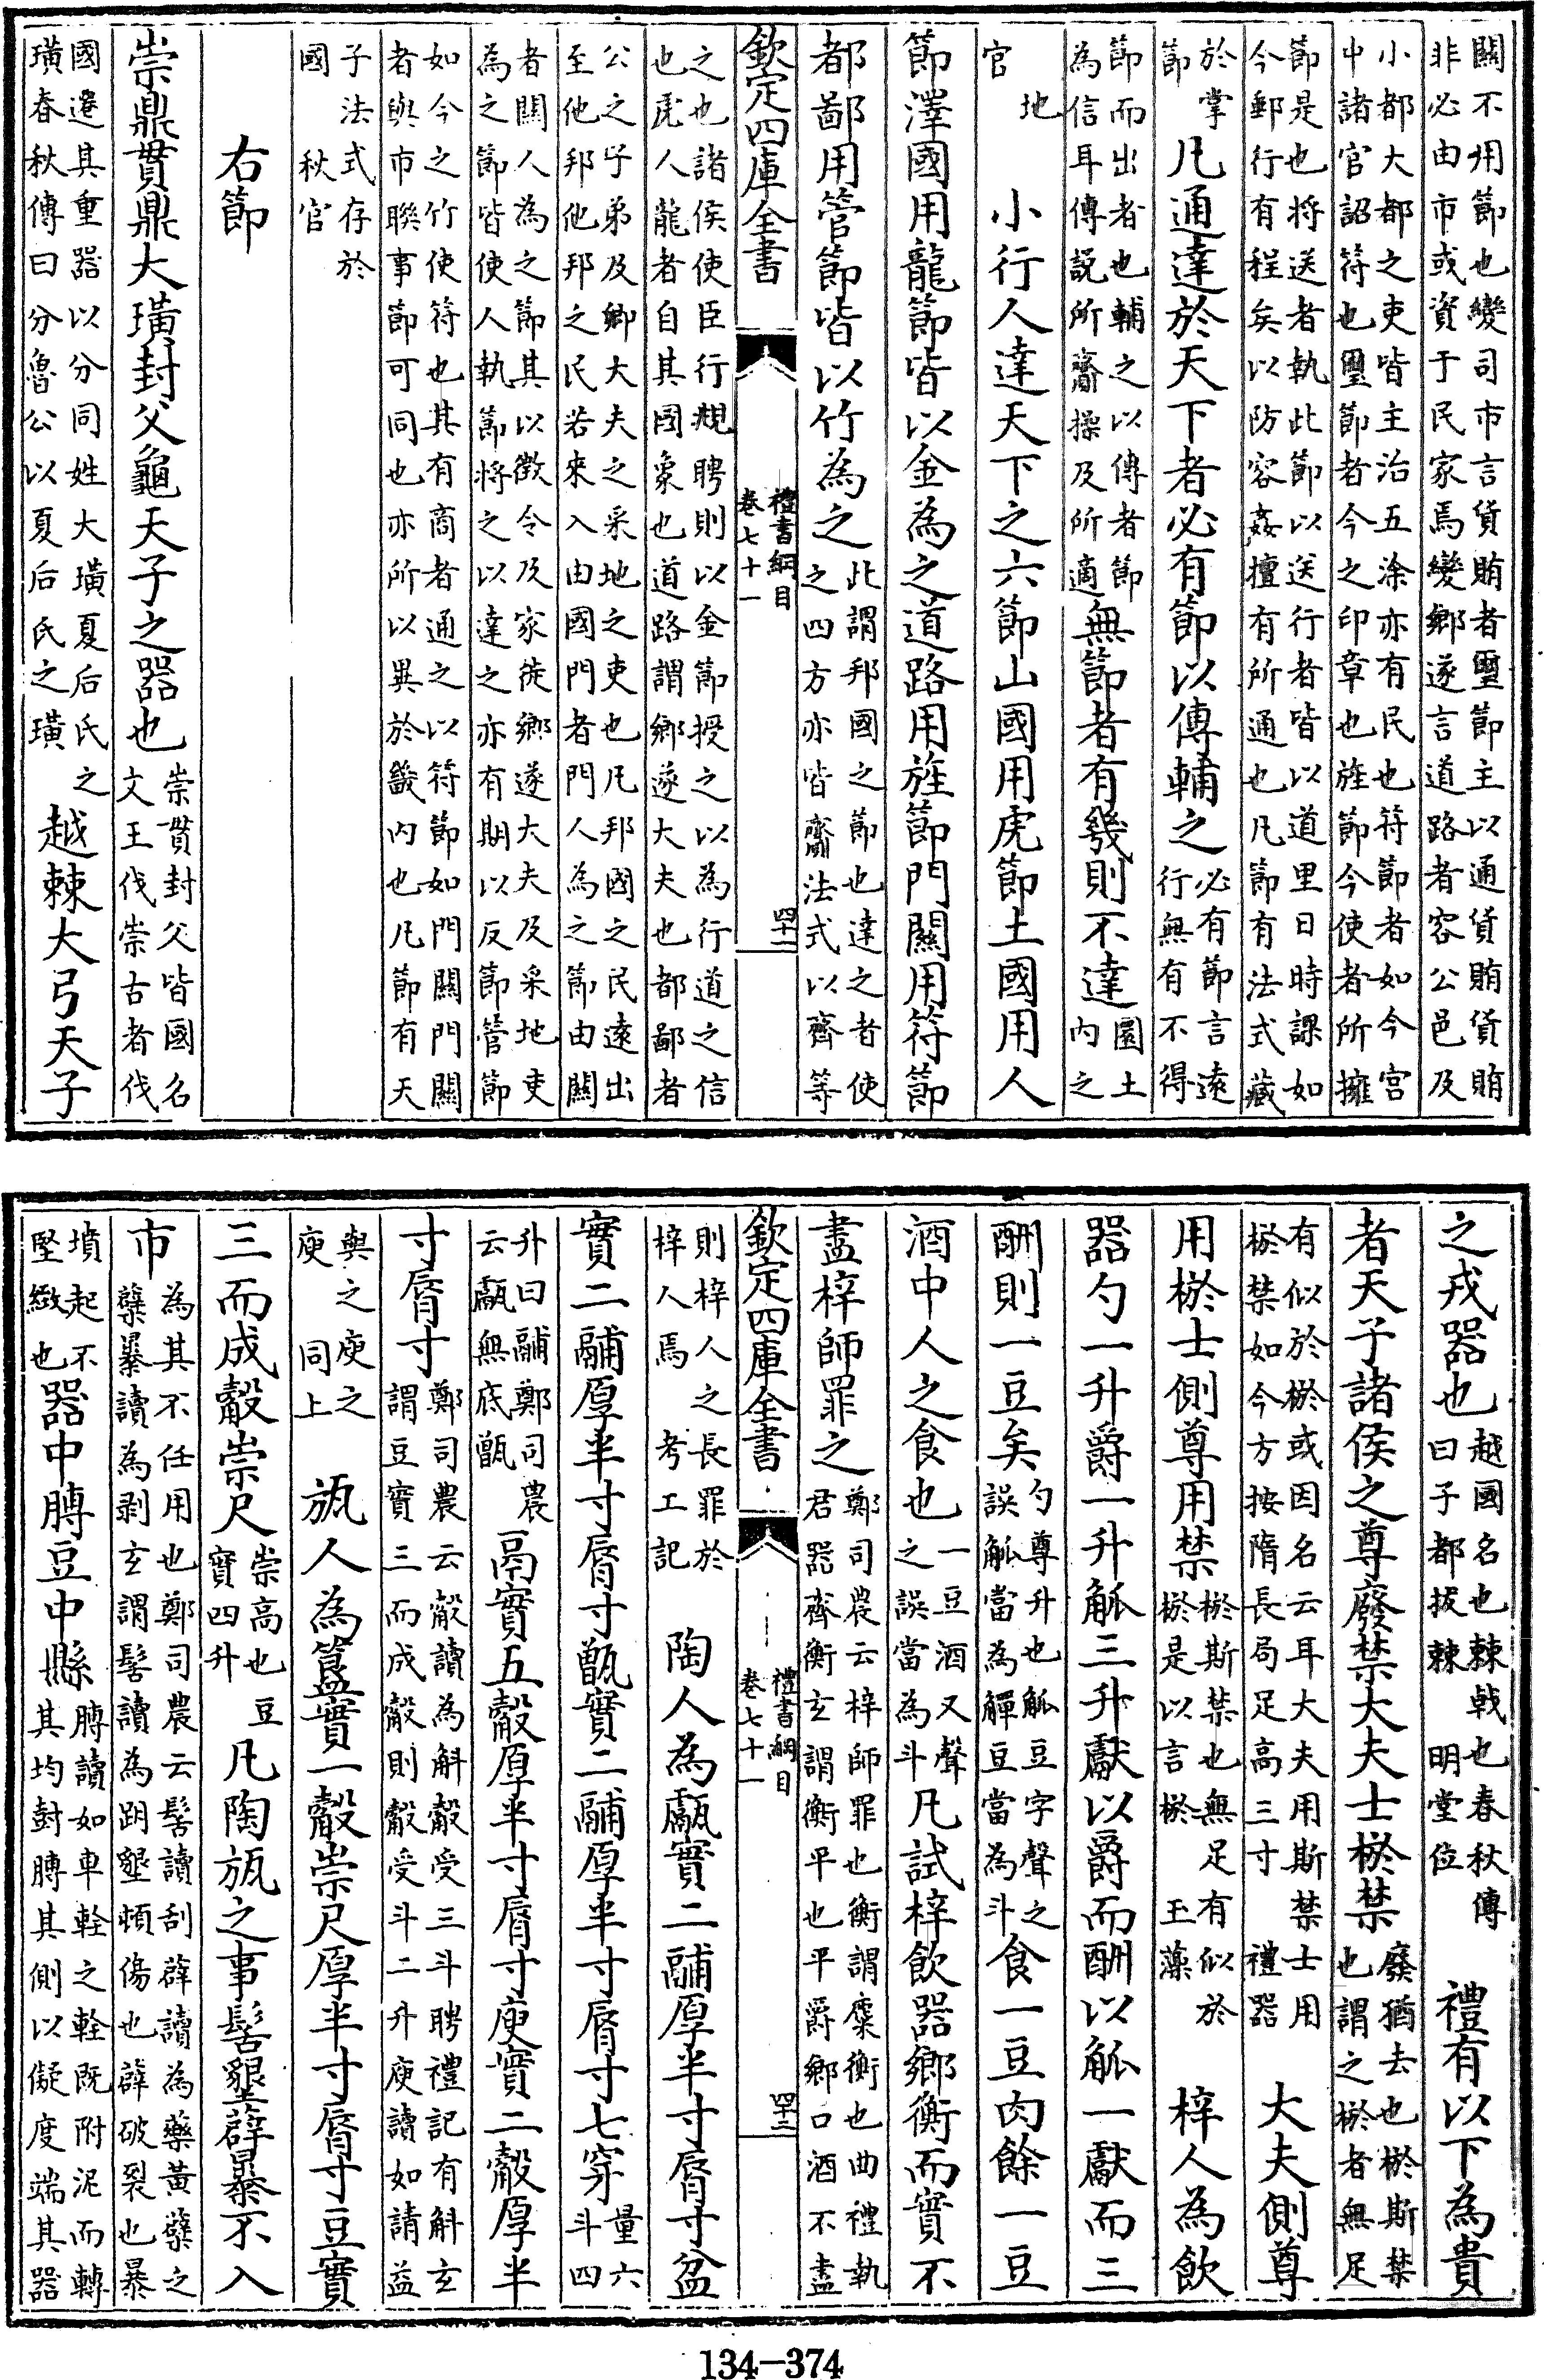 關不用節也變司市言貨賄者璽節主以通貨賄貨賄
非必由市或資于民家焉變鄉遂言道路者容公邑及
小都大都之吏皆主治五涂亦有民也符節者如今宫
中諸官詔符也璽節者今之印章也旌節今使者所擁
節是也将送者執此節以送行者皆以道里日時課如
今郵行有程矣以防容姦擅有所通也凡節有法式藏
於掌節　凡通達於天下者必有節以傳輔之必有節言遠行無有不得
節而出者也輔之以傳者節為信耳傳説所齎操及所適無節者有幾則不達圜土内之
地官　小行人達天下之六節山國用虎節土國用人
節澤國用龍節皆以金為之道路用旌節門關用符節
都鄙用管節皆以竹為之此謂邦國之節也達之者使之四方亦皆齎法式以齊等
欽定四庫全書　禮書綱目卷七十一　四十二
之也諸侯使臣行覜聘則以金節授之以為行道之信
也虎人龍者自其國象也道路謂鄉遂大夫也都鄙者
公之子弟及卿大夫之采地之吏也凡邦國之民遠出
至他邦他邦之民若來入由國門者門人為之節由關
者關人為之節其以徵令及家徒鄉遂大夫及采地吏
為之節皆使人執節將之以達之亦有期以反節管節
如今之竹使符也其有商者通之以符節如門關門關
者與市聯事節可同也亦所以異於畿内也凡節有天
子法式存於國　秋官
右節
崇鼎貫鼎大璜封父龜天子之器也崇貫封父皆國名文王伐崇古者伐
國遷其重器以分同姓大璜夏后氏之璜春秋傳曰分魯公以夏后氏之璜　越棘大弓天子
之戎器也越國名也棘戟也春秋傳曰子都拔棘　明堂位　禮有以下為貴
者天子諸侯之尊廢禁大夫士棜禁廢猶去也棜斯禁也謂之棜者無足
有似於棜或因名云耳大夫用斯禁士用棜禁如今方按隋長局足高三寸　禮器　大夫側尊
用棜士側尊用禁棜斯禁也無足有似於棜是以言棜　玉藻　梓人為飲
器勺一升爵一升觚三升獻以爵而酬以觚一獻而三
酬則一豆矣勺尊升也觚豆字聲之誤觚當為觶豆當為斗食一豆肉餘一豆
酒中人之食也一豆酒又聲之誤當為斗凡試梓飲器鄉衡而實不
盡梓師罪之鄭司農云梓師罪也衡謂麋衡也曲禮執君器齊衡玄謂衡平也平爵鄉口酒不盡
欽定四庫全書　禮書綱目卷七十一　四十三
則梓人之長罪於梓人焉　考工記　陶人為甗實二鬴厚半寸脣寸盆
實二鬴厚半寸脣寸甑實二鬴厚半寸脣寸七穿量六斗四
升曰鬴鄭司農云甗無底甑　鬲實五觳厚半寸脣寸庾實二觳厚半
寸脣寸鄭司農云觳讀為斛觳受三斗聘禮記有斛玄謂豆實三而成觳則觳受斗二升庾讀如請益
與之庾之庾　同上　瓬人為簋實一觳崇尺厚半寸脣寸豆實
三而成觳崇尺崇高也豆實四升凡陶瓬之事髺墾薜暴不入
市為其不任用也鄭司農云髺讀刮薜讀為藥黄蘗之蘗暴讀為剥玄謂髺讀為跀墾頓傷也薜破裂也暴
墳起不堅緻也器中膞豆中縣膞讀如車輇之輇既拊泥而轉其均尌膞其側以儗度端其器
134-374